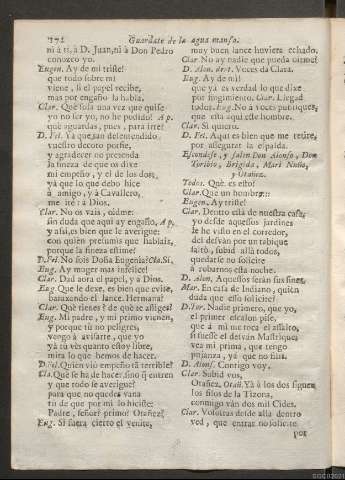 172 Guardate de la agua mansa.
ni à ti, à D. Juan, ni à Don Pedro
conozco yo.
Eugen. Ay de mi triste!
que todo sobre mi
viene, si el papel recibe,
mas por engaño la habla.
Clar. Que sola una vez que quise
yo no ser yo, no he podido! Ap.
què aguardas, pues, para irte?
D. Fel. Yà que tan defendiendo
vuestro decoro posible,
y agradecer no pretenda
la fineza de que os dixe
mi empeño, y el de los dos,
yà que lo que debo hice
à amigo, y à Cavallero,
me irè: à Dios.
Clar. No os vais, oìdme:
sin duda que aqui ay engaño, Ap.
y assi, es bien que le averigue:
con quièn presumis que hablais,
porque la fineza estime?
D. Fel. No sois Doña Eugenia? Cla. Si,
Eug. Ay muger mas infelice!
Clar. Dad aora el papel, y à Dios.
Eug. Que le dexe, es bien que evite,
baraxando el lance. Hermana?
Clar. Què tienes? de què te afliges?
Eug. Mi padre, y mi primo vienen,
y porque tù no peligres,
vengo à avisarte, que yo
yà tù vès quanto estoy libre,
mira lo que hemos de hacer.
D. Fel. Quien viò empeño tã terrible!
Cla. Què se ha de hacer, sino q̃ entren
y que todo se averigue?
para que no quedes vana
tù de que por mi lo hiciste:
Padre, señor? primo? Otañez?
Eug. Si fuera cierto el venirse,
muy buen lance huviera echado.
Clar. No ay nadie que pueda oirme?
D. Alon. dent. Voces dà Clara.
Eug. Ay de mi!
que yà es verdad lo que dixe
por fingimiento. Clar. Llegad
todos. Eug. No à voces publiques,
que està aqui esse hombre.
Clar. Si quiero.
D. Fel. Aqui es bien que me retire,
por assegurar la espalda.
Escondese, y salen Don Alonso, Don
Toribio, Brigida, Mari Nuño,
y Otañez.
Todos. Què es esto?
Clar. Que un hombre::
Eugen. Ay triste!
Clar. Dentro està de nuestra casa,
yo desde aquessos jardines
le he visto en el corredor,
del desvan por un tabique
saltò, subid allà todos,
quedarse no solicite
à robarnos esta noche.
D. Alon. Aquessos seràn sus fines.
Mar. En casa de Indiano, quièn
duda que esso solicite?
D. Tor. Nadie primero, que yo,
el primer escalon pise,
que à mi me toca el assalto,
si fuesse el desvàn Mastrique;
vea mi prima, que tengo
pujanza, yà que no filis.
D. Alons. Contigo voy.
Clar. Subid vos,
Otañez. Otañ. Yà à los dos siguen
los filos de la Tizona,
conmigo vàn dos mil Cides.
Clar. Vosotras desde allà dentro
ved, que entrar no solicite
por